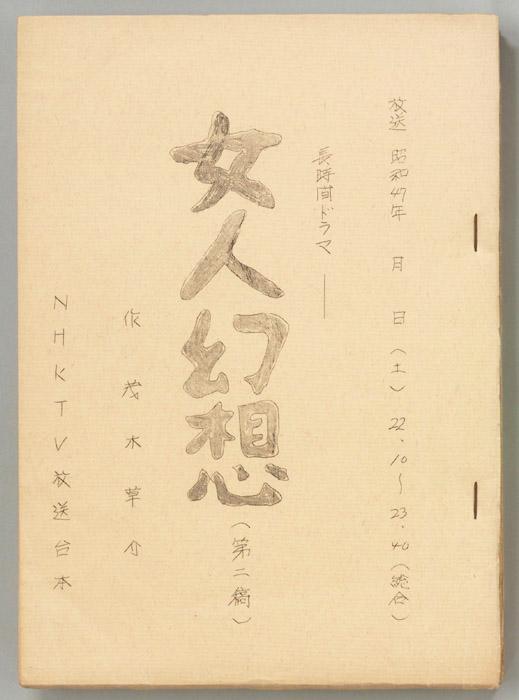 放送 昭和47年 月 日（土）22.10～23.40（総合）
長時間ドラマ――
女人幻想（第二稿）
作 茂木草介
NHKTV放送台本